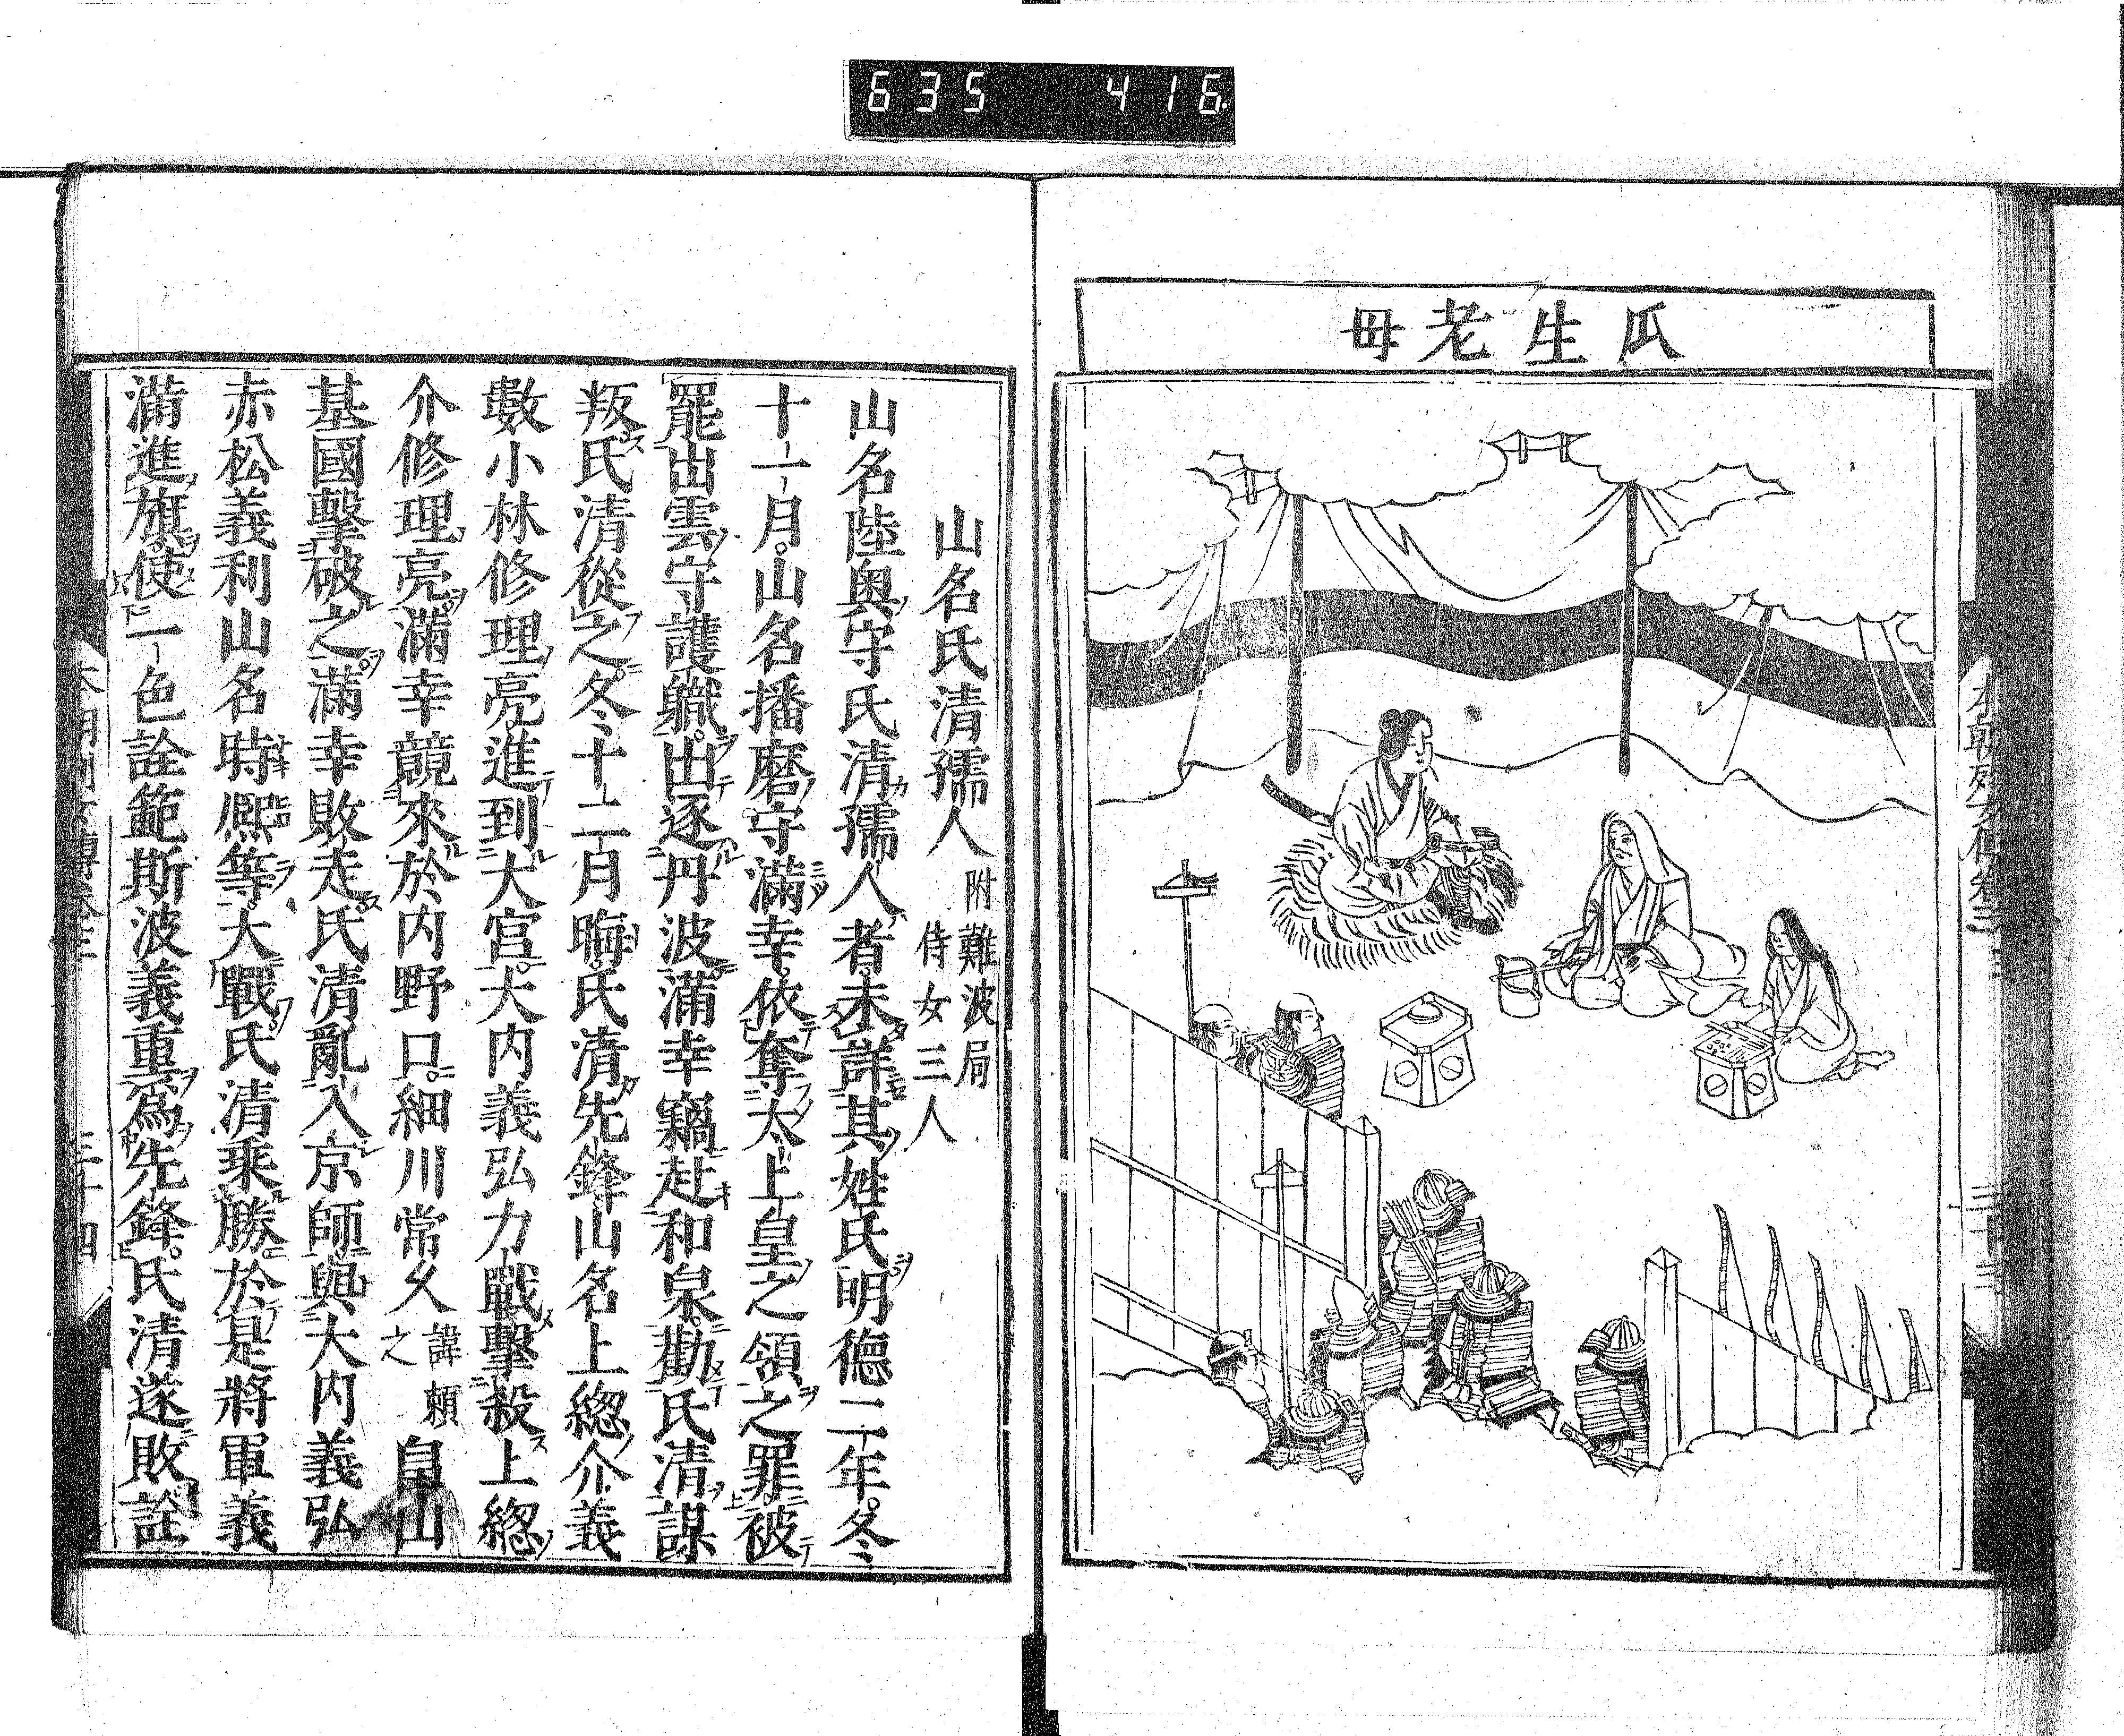 635 416
瓜生老母
本朝列女傳卷三 三十三
山名氏清孺人 附難波局侍女三人
山名陸奥守氏清孺人者未詳其姓氏明德二年冬
十一月山名播磨守滿幸依奪太上皇之領之罪被
罷出雲守護職出逐丹波滿幸竊赴和泉勸氏清謀
叛氏清從之冬十二月晦氏清先鋒山名上總介義
數小林修理亮進到大宮大内義弘力戰擊殺上總
介修理亮滿幸競來於内野口細川常久 諱頼之 畠山
基國擊破之滿幸敗走氏清亂入京師與大内義弘
赤松義利山名時凞等大戰氏清乘勝於是將軍義
滿進旗使一色詮範斯波義重爲先鋒氏清遂敗詮
本朝列女傳卷三 三十四